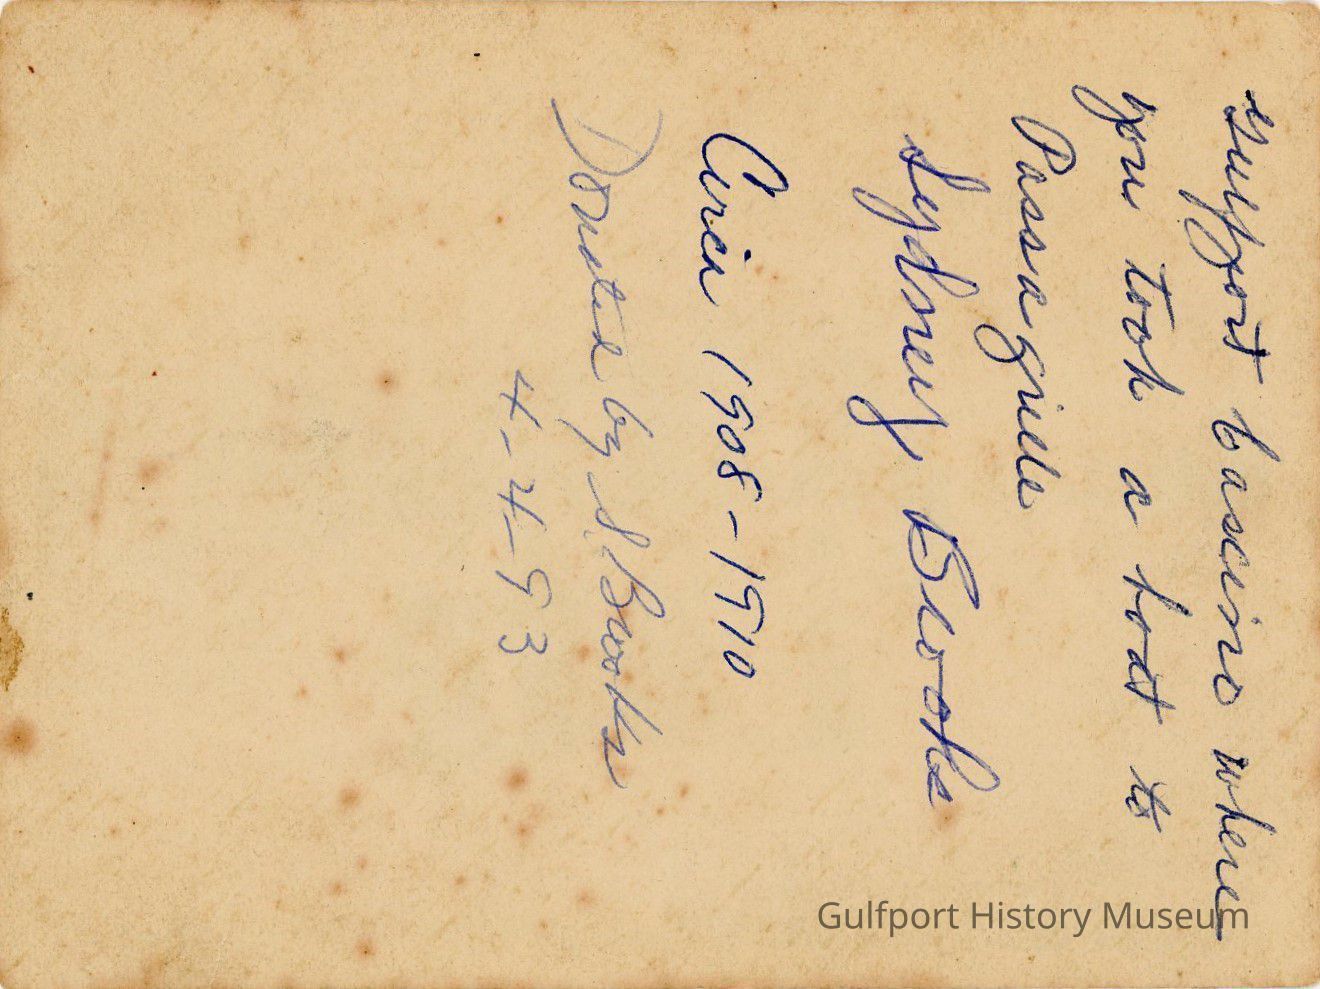 Gulfport Cascino where
you took a boat to
Passagrille
Sydney Brooks
Circa 1908-1910
Donated by S. Brooks
4-4-93
Gulfport History Museum